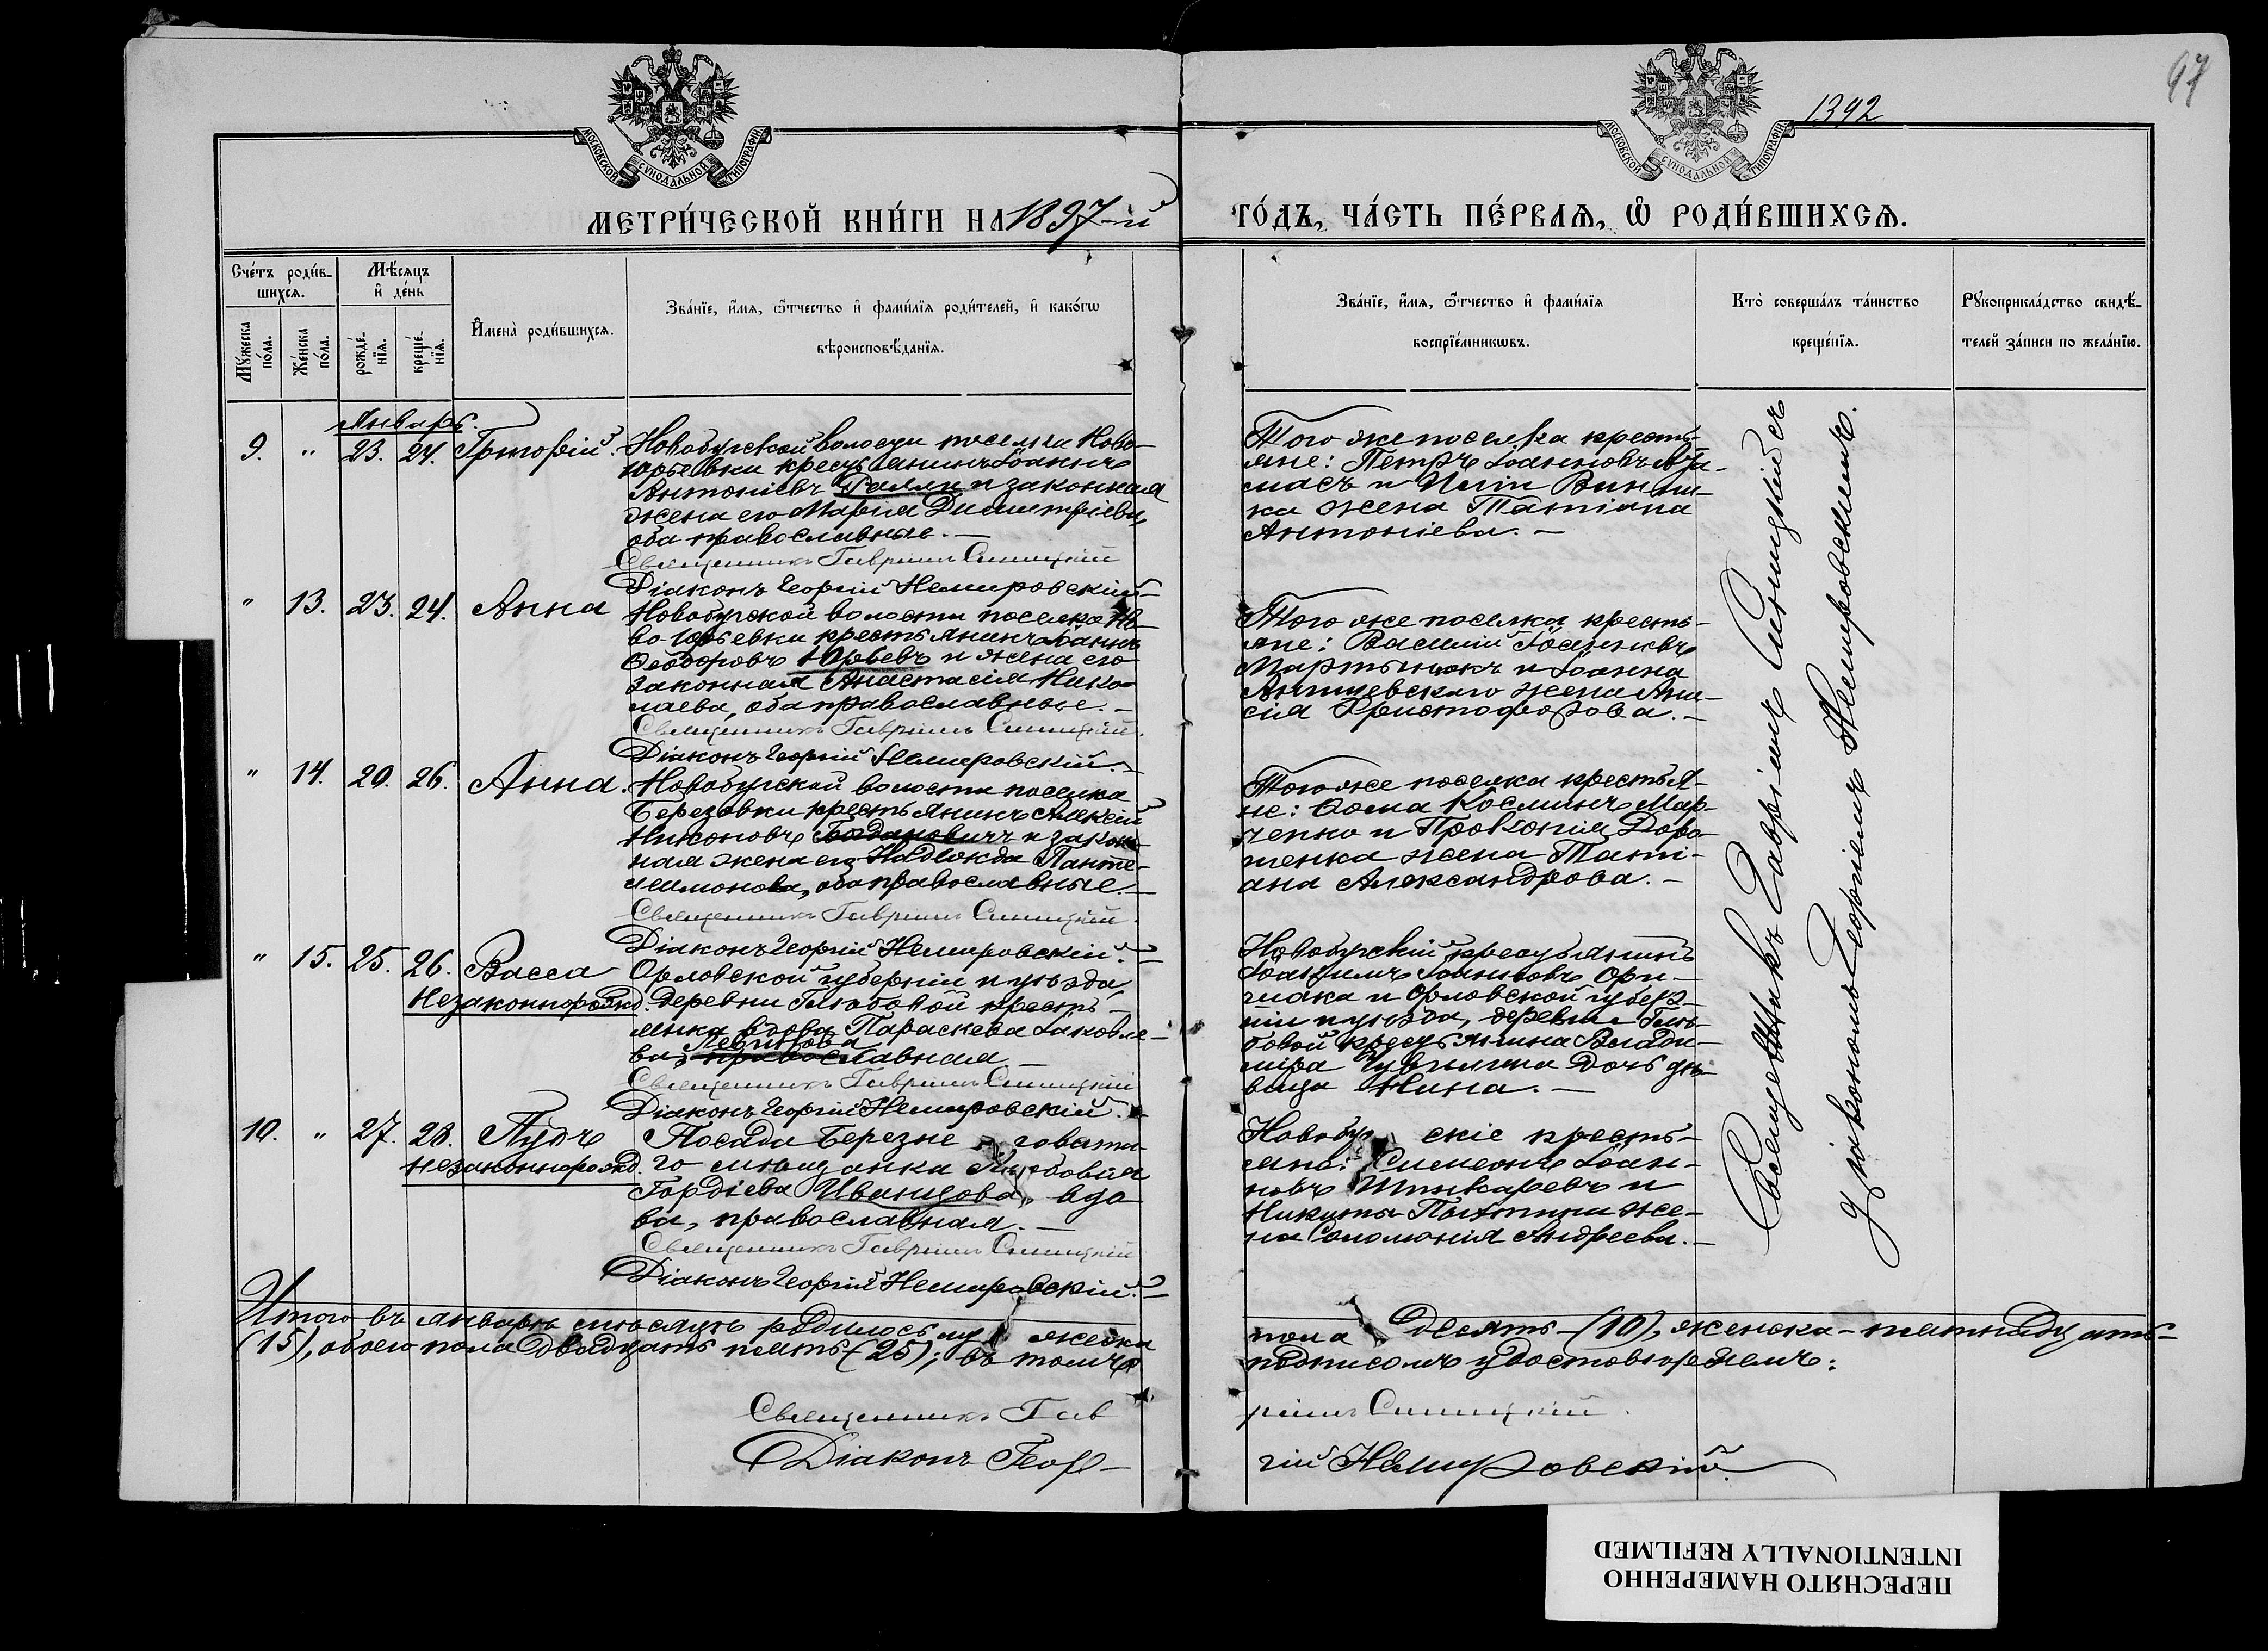 97
1392
МОСКОВСКОЙ СУНОДАЛЬНОЙ ТИПОГРАФІИ
МОСКОВСКОЙ СУНОДАЛЬНОЙ ТИПОГРАФІИ
МЕТРИ́ЧЕСКОЙ КНИ́ГИ НА 1897-й
ГО́ДЪ, ЧА́СТЬ ПЕ́РВАѦ, Ѿ РОДИ́ВШИХСѦ.
Сче́тъ роди́в-
шихсѧ.
Мѹжеска по́ла.
Же́нска по́ла.
Мѣ́сѧцъ
и де́нь
рожде́-
нїѧ.
креще́-
нїѧ.
И҆мена̀ роди́вшихсѧ.
Зва́нїе, и҆́мѧ, ѻ҆́тчество и҆ фами́лїѧ роди́телей, и҆ како́гѡ
вѣроисповѣ́данїѧ.
Зва́нїе, и҆́мѧ, ѻ҆́тчество и҆ фами́лїѧ
воспрїе́мникѡвъ.
Кто̀ соверша́лъ та́инство
креще́нїѧ.
Рѹкоприкла́дство свидѣ́-
телей за́писи по жела́нїю.
Январь.
9. " 23. 24. Григорій.
Новобугской волости поселка Ново-
юрьевки крестьянинъ Іоаннъ
Антоніевъ и законная
жена его Марія Димитріева,
оба православные.—
Священникъ Гавріилъ Синицкій
Діаконъ Георгій Немировскій.—
Того же поселка кресть-
яне: Петръ Іоанновъ
и Винни-
ка жена Татіана
Антоніева.—
" 13. 23. 24. Анна
Новобугской волости поселка Но-
во-Юрьевки крестьянинъ Іоаннъ
Ѳеодоровъ Юрьевъ и жена его
законная Анастасія Нико-
лаева, оба православные.—
Священникъ Гавріилъ Синицкій.
Діаконъ Георгій Немировскій.—
Того же поселка кресть-
яне: Василій Іоанновъ
Мартынюкъ и Іоанна
жена Ани-
сія Христофорова.—
" 14. 20. 26. Анна.
Новобугской волости поселка
Березовки крестьянинъ Алексій
Никоновъ Богдановичъ и закон-
ная жена его Надежда Панте-
леимонова, оба православные.—
Священникъ Гавріилъ Синицкій.
Діаконъ Георгій Немировскій.—
Того же поселка крестья-
не: Ѳома Косминъ Мар-
ченко и Прокопія Доро-
шенка жена Тати-
ана Александрова.—
" 15. 25. 26. Васса
Незаконнорожд.
Орловской губерніи и уѣзда,
деревни крестья-
янка вдова Параскева Іаковле-
ва, православная—
Священникъ Гавріилъ Синицкій
Діаконъ Георгій Немировскій.
Новобугскій крестьянинъ
Іоанновъ
и Орловской губер-
ніи и уѣзда, деревни
крестьянина Влади-
міра дочь дѣ-
вица Нина.—
10. " 27. 28. Пудъ
незаконнорожд.
Посада Березне говата-
го мѣщанка
Гордіева Иванцова, вдо-
ва, православная.—
Священникъ Гавріилъ Синицкій
Діаконъ Георгій Немировскій.—
Новобугскіе кресть-
яне: Симеонъ Іоан-
новъ Шинкаревъ и
Никиты же-
на Соломонія Андреева.—
Священникъ Гавріилъ Синицкій съ
діакономъ Георгіемъ Немировскимъ.
Итого въ январѣ мѣсяцѣ родилось мужеска пола десять—(10), женска—пятнадцать—
(15), обоего пола двадцать пять (25); въ томъ подписомъ удостовѣряемъ:
Священникъ Гавріилъ Синицкій.
Діаконъ Георгій Немировскій.
ПЕРЕСНЯТО НАМЕРЕННО
INTENTIONALLY REFILMED